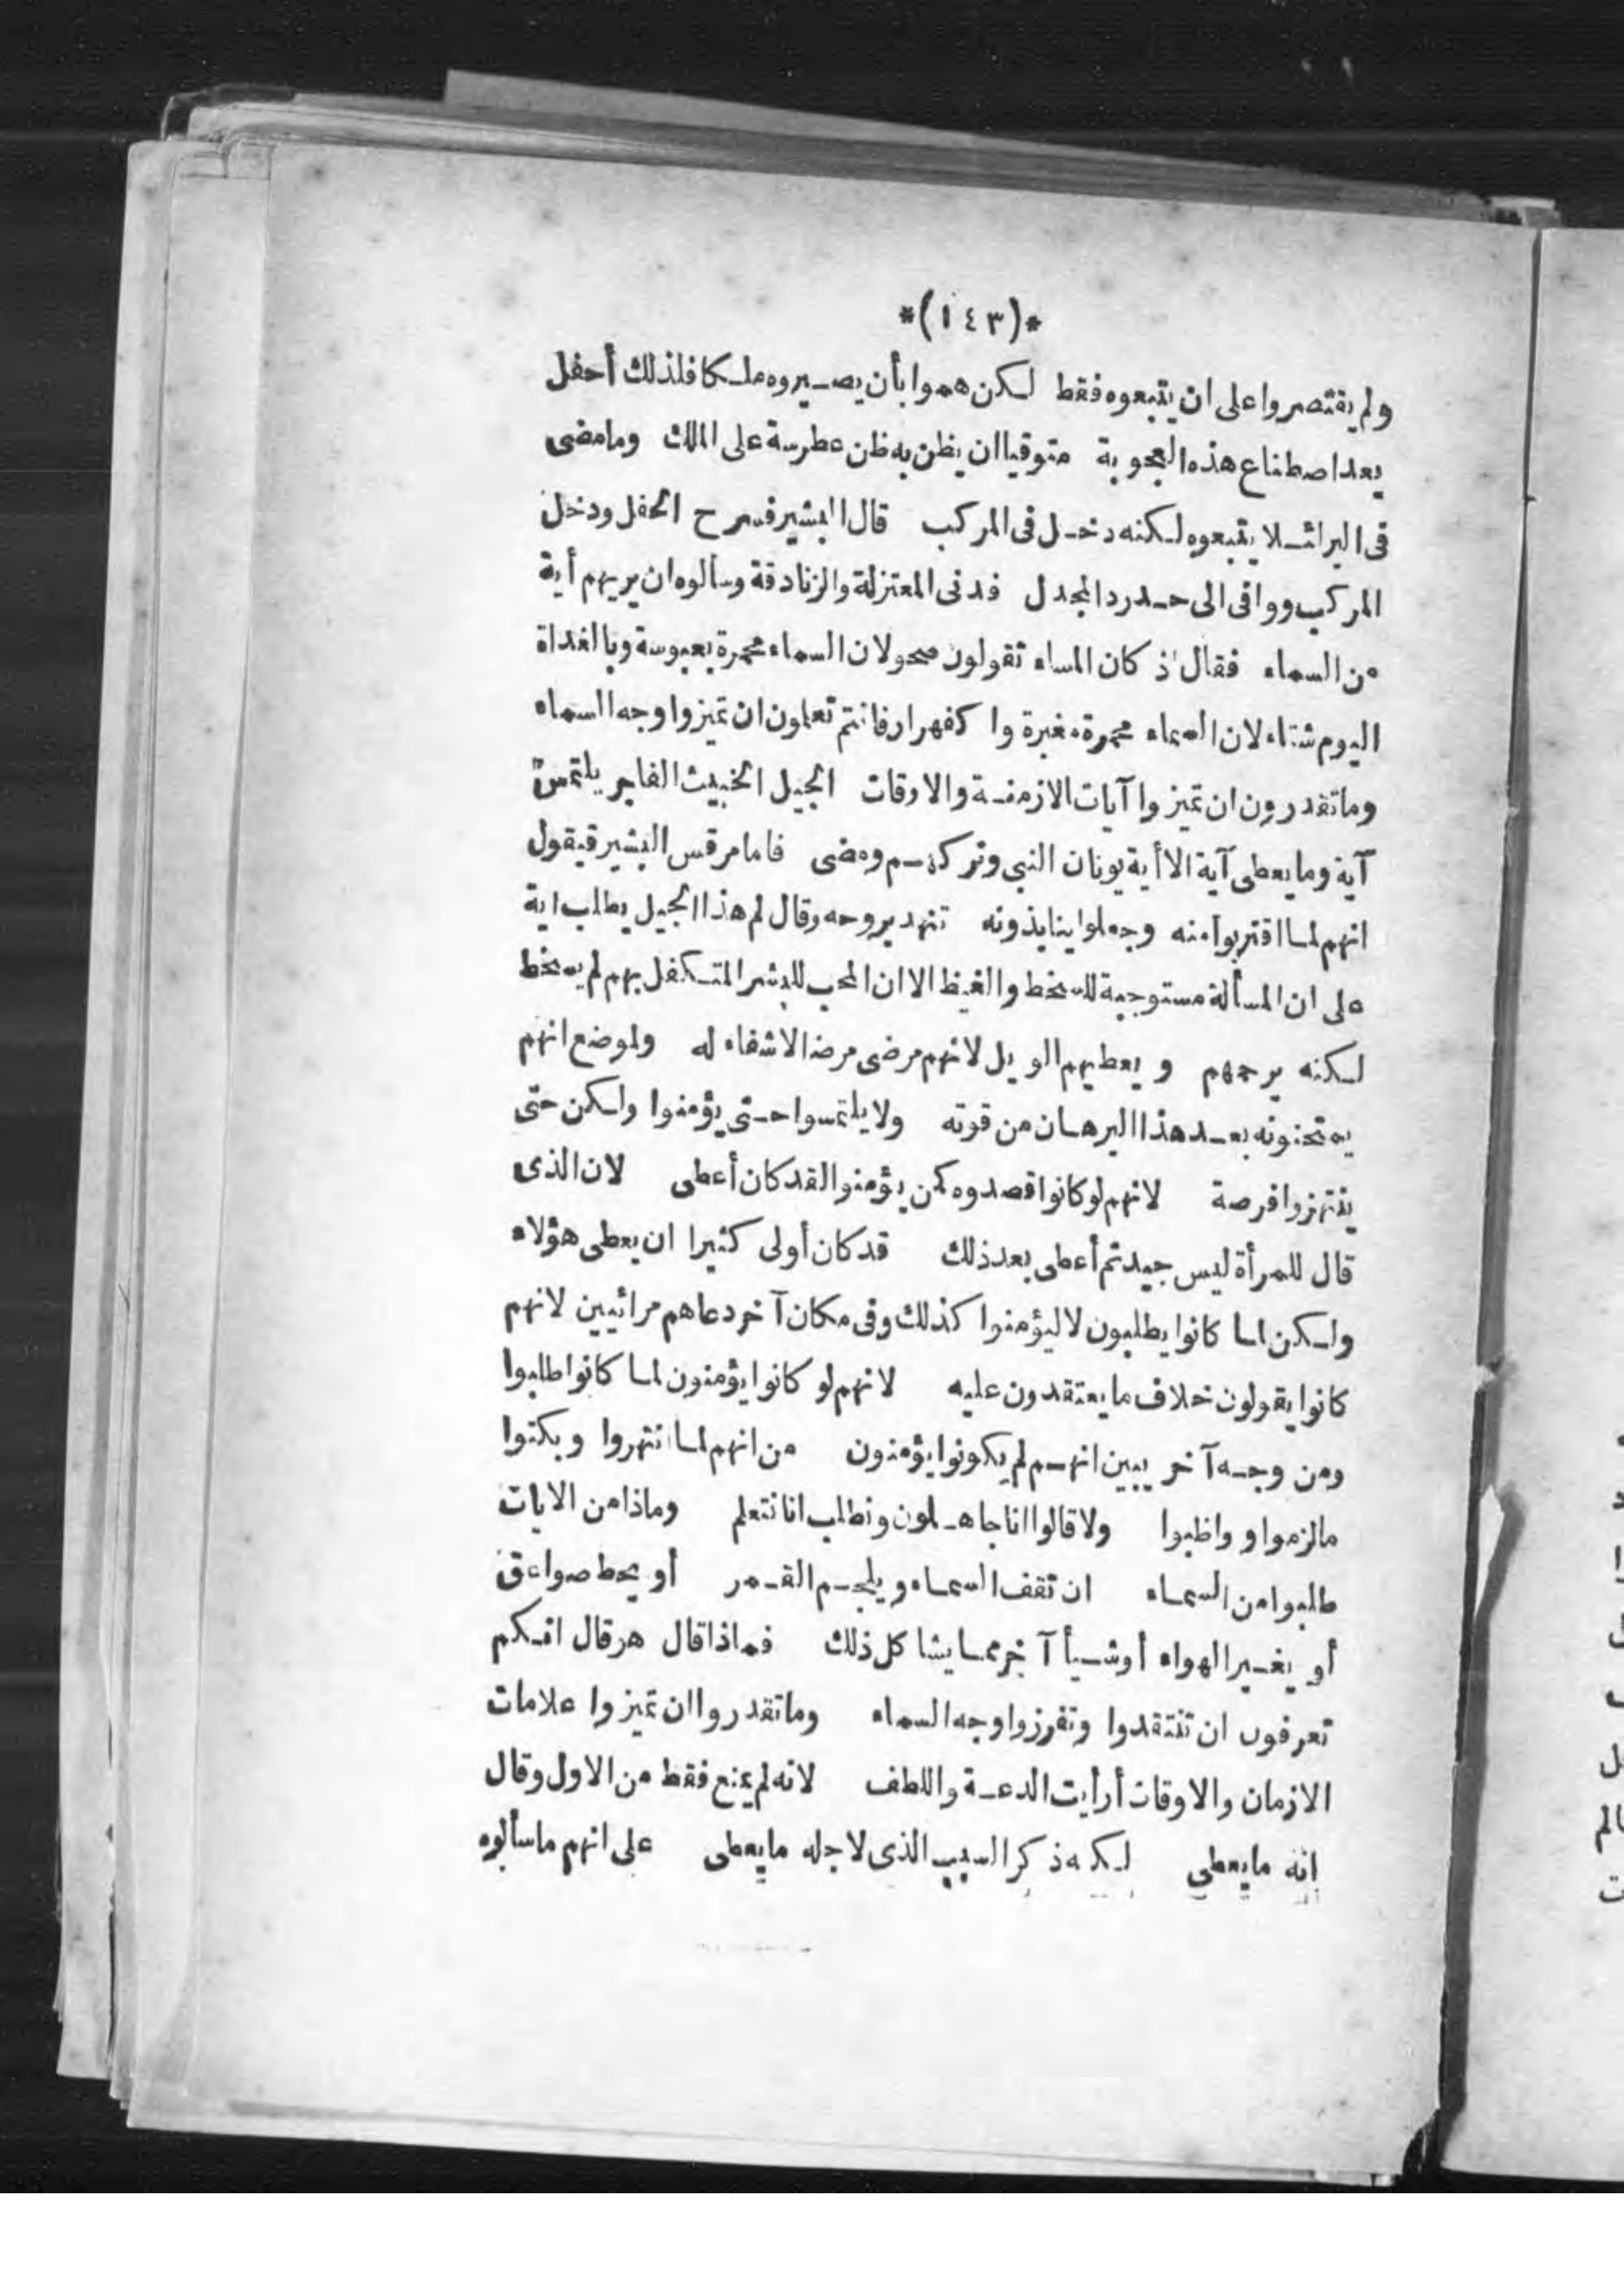 *(١٤٣)*
ولم يقتصروا على ان يتبعوه فقط لكن هموا بأن يصيروه ملكا فلذلك أحفل
بعد اصطناع هذه العجوبة متوقيا ان يظن به ظن عطرسة على الملك وما مضى
فى البر لئلا يتبعوه لكنه دخل فى المركب قال البشير فسرح الحفل ودخل
المركب ووافى الى حدرد المجدل فدنى المعتزلة والزنادقة وسألوه ان يريهم أية
من السماء فقال اذ كان المساء تقولون صحو لان السماء محمرة بعبوسة وبالغداة
اليوم شتاء لان السماء محمرة مغبرة واكفهرار فانتم تعلمون ان تميزوا وجه السماء
وما تقدرون ان تميزوا آيات الازمنة والاوقات الجيل الخبيث الفاجر يلتمس
آية وما يعطى آية الا أية يونان النبي وتركهم ومضى فاما مرقس البشير فيقول
انهم لما اقتربوا منه وجعلوا ينابذونه تنهد بروحه وقال لم هذا الجيل يطلب اية
على ان المسألة مستوجبة للسخط والغيظ الا ان المحب للبشر المتكفل بهم لم يسخط
لكنه يرحمهم ويعطيهم الويل لانهم مرضى مرضا لا شفاء له ولموضع انهم
يمتحنونه بعد هذا البرهان من قوته ولا يلتمسوا حتى يؤمنوا ولكن حتى
ينتهزوا فرصة لانهم لو كانوا قصدوه كمن يؤمنوا لقد كان أعطى لان الذى
قال للمرأة ليس جيد ثم أعطى بعد ذلك قد كان أولى كثيرا ان يعطى هؤلاء
ولكن لما كانوا يطلبون لا ليؤمنوا كذلك وفى مكان آخر دعاهم مرائيين لانهم
كانوا يقولون خلاف ما يعتقدون عليه لانهم لو كانوا يؤمنون لما كانوا طلبوا
ومن وجه آخر يبين انهم لم يكونوا يؤمنون من انهم لما انتهروا وبكتوا
ما لزموا و واظبوا ولا قالوا انا جاهلون ونطلب انا نتعلم وماذا من الايات
طلبوا من السماء ان تقف السماء ويلجم القمر أو يحط صواعق
أو يغير الهواء أو شيأ آخر مما يشا كل ذلك فماذا قال هو قال انكم
تعرفون ان تنتقدوا وتفرزوا وجه السماء وما تقدروا ان تميزوا علامات
الازمان والاوقات أرأيت الدعة واللطف لانه لم يمنع فقط من الاول وقال
انه ما يعطى لكنه ذكر السبب الذى لاجله ما يعطى على انهم ما سألوه